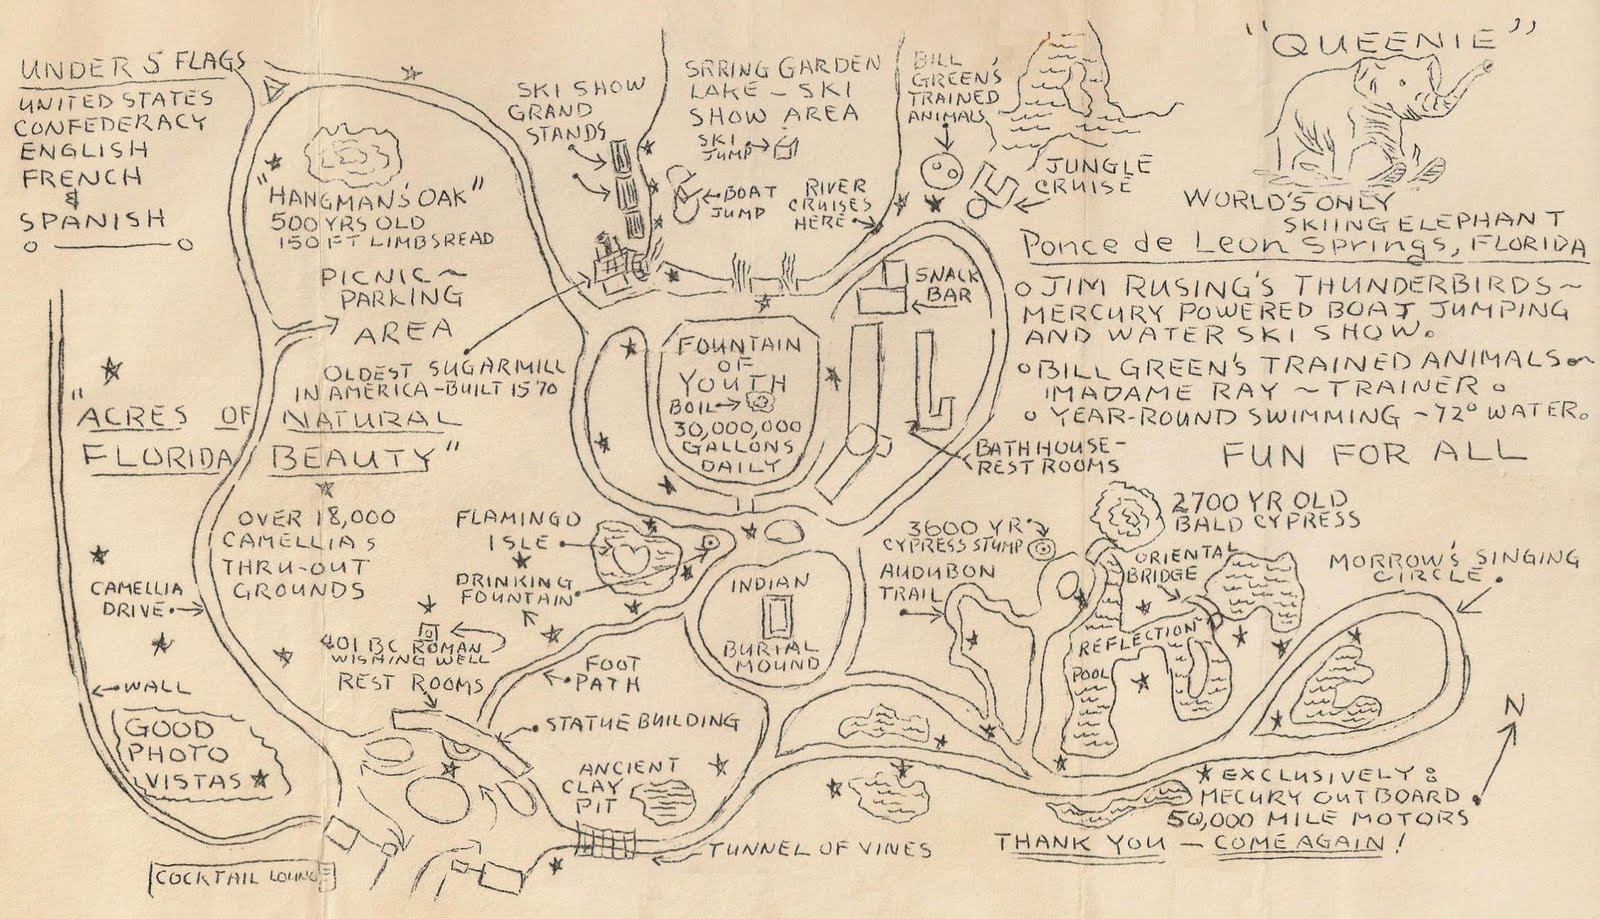 UNDER 5 FLAGS
UNITED STATES
CONFEDERACY
ENGLISH
FRENCH
&
SPANISH
"HANGMAN'S OAK"
500 YRS OLD
150 FT LIMBSREAD
PICNIC~
PARKING
AREA
SKI SHOW
GRAND
STANDS
SRRING GARDEN
LAKE - SKI
SHOW AREA
SKI
JUMP
BOAT
JUMP
RIVER
CRUISES
HERE
BILL
GREEN'S
TRAINED
ANIMALS
JUNGLE
CRUISE
"QUEENIE"
WORLD'S ONLY
SKIING ELEPHANT
Ponce de Leon Springs, FLORIDA
JIM RUSING'S THUNDERBIRDS ~
MERCURY POWERED BOAT JUMPING
AND WATER SKI SHOW.
BILL GREEN'S TRAINED ANIMALS ~
MADAME RAY ~ TRAINER.
YEAR-ROUND SWIMMING ~ 72° WATER.
FUN FOR ALL
OLDEST SUGARMILL
IN AMERICA-BUILT 1570
SNACK
BAR
FOUNTAIN
OF
YOUTH
BOIL
30,000,000
GALLONS
DAILY
BATH HOUSE-
REST ROOMS
"ACRES OF NATURAL
FLORIDA BEAUTY"
OVER 18,000
CAMELLIAS
THRU-OUT
GROUNDS
CAMELLIA
DRIVE
WALL
FLAMINGO
ISLE
DRINKING
FOUNTAIN
401 BC ROMAN
WISHING WELL
REST ROOMS
FOOT
PATH
STATUE BUILDING
INDIAN
BURIAL
MOUND
3600 YR
CYPRESS STUMP
AUDUBON
TRAIL
2700 YR OLD
BALD CYPRESS
ORIENTAL
BRIDGE
REFLECTION
POOL
MORROW'S SINGING
CIRCLE
N
GOOD
PHOTO
VISTAS
ANCIENT
CLAY
PIT
TUNNEL OF VINES
COCKTAIL LOUNGE
EXCLUSIVELY:
MECURY OUTBOARD
50,000 MILE MOTORS
THANK YOU - COME AGAIN!